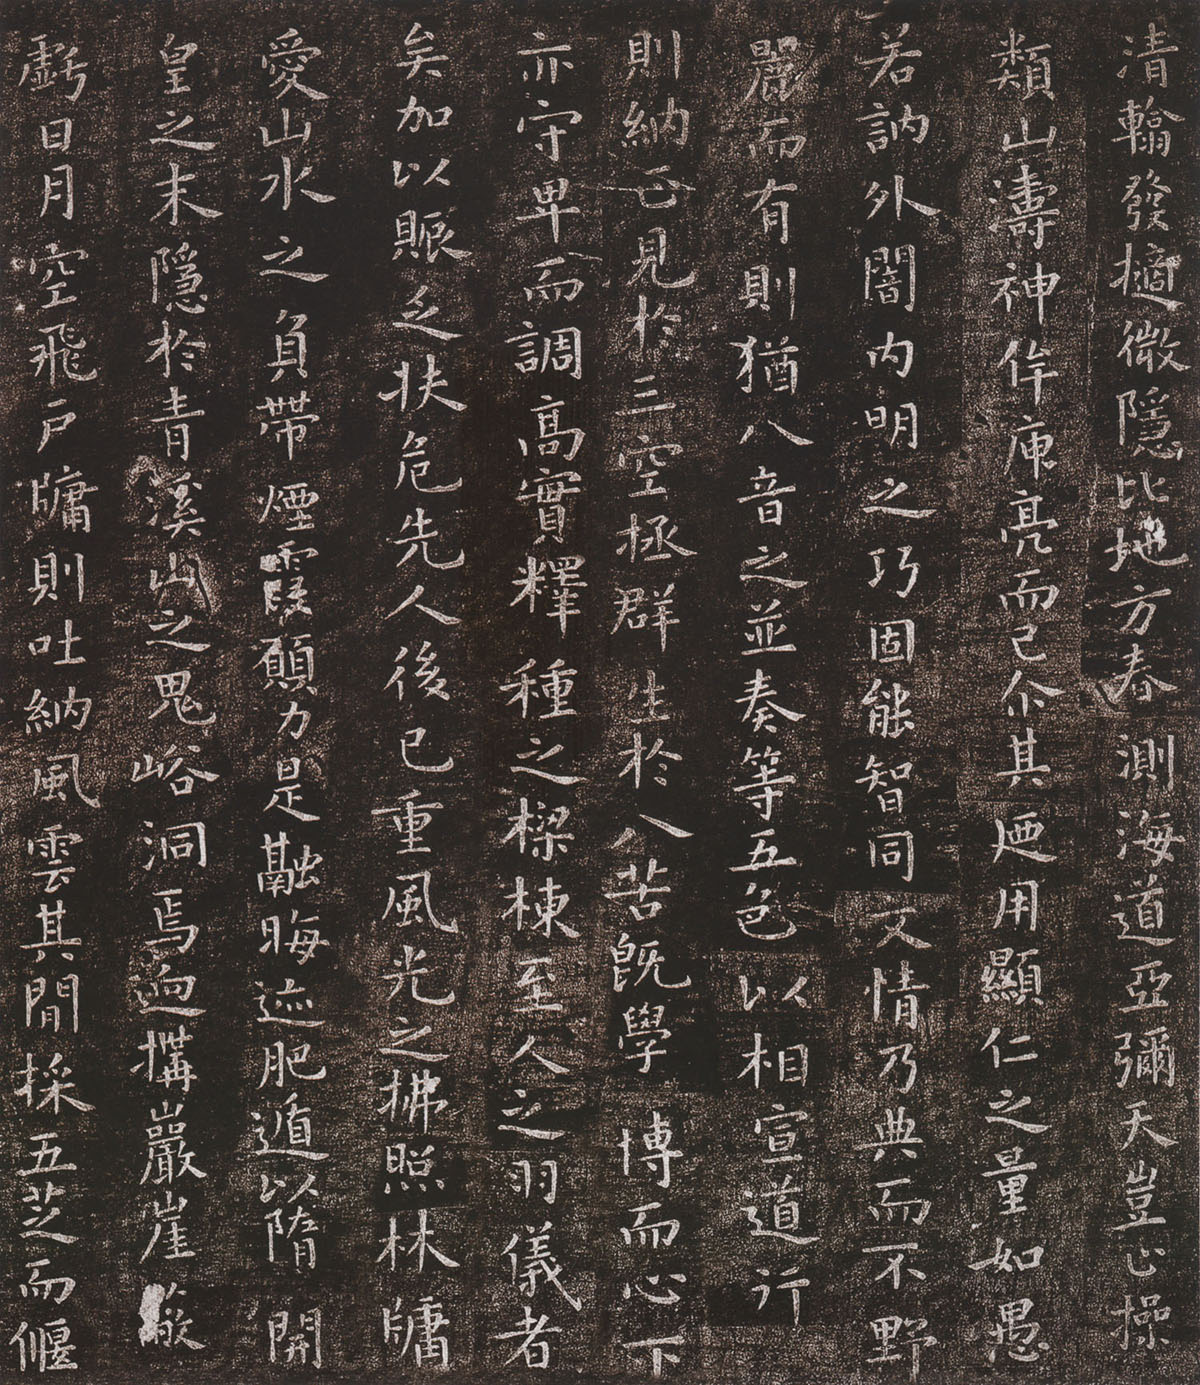 清翰發擿微隱比地方春測海道亞彌天豈止操
類山濤神侔庾亮而已尒其廼用顯仁之量如愚
若訥外闇内明之巧固能智同文情乃典而不野
麗而有則猶八音之並奏等五色以相宣道行
則納正見於三空拯群生於八苦旣學博而心下
亦守卑而調高實釋種之樑棟至人之羽儀者
矣加以賑乏扶危先人後已重風光之拂照林牖
愛山水之負帶煙霞願力是融晦迹肥遁以隋開
皇之末隱於青溪山之鬼峪洞焉迥構巖崖簌
虧日月空飛户牖則吐納風雲其間採五芝而偃